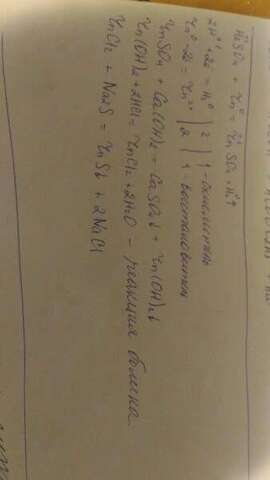 H₂SO₄ + Zn⁰ = Zn⁺²SO₄ + H₂⁰↑
2H⁺ + 2ē = H₂⁰ | 2 | 1 - окислитель
Zn⁰ - 2ē = Zn⁺² | 2 | 1 - восстановитель
ZnSO₄ + Ca(OH)₂ = CaSO₄↓ + Zn(OH)₂↓
Zn(OH)₂ + 2HCl = ZnCl₂ + 2H₂O - реакция обмена
ZnCl₂ + Na₂S = ZnS↓ + 2NaCl